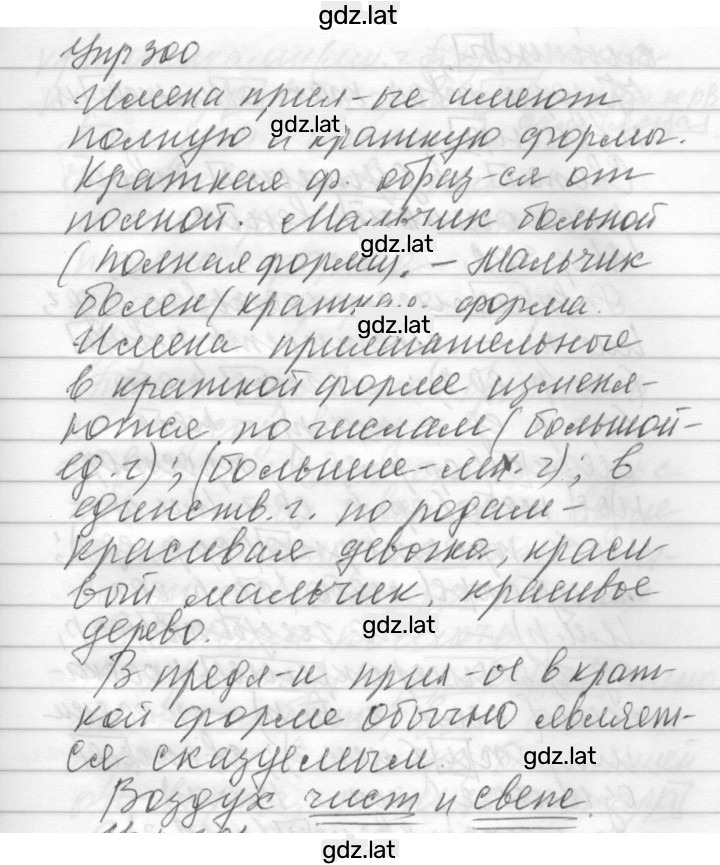 gdz.lat
Упр 300
Имена прил-ые имеют
gdz.lat
полную и краткую формы.
Краткая ф. образ-ся от
полной. Мальчик больной
gdz.lat
(полная форма). – Мальчик
болен (краткая форма.
gdz.lat
Имена прилагательные
в краткой форме изменя-
ются по числам (большой-
ед. ч); (большие-мн. ч); в
единств. ч. по родам-
красивая девочка, краси
вый мальчик, красивое
дерево.
gdz.lat
В предл-и прил-ое в крат-
кой форме обычно являет-
ся сказуемым.
gdz.lat
Воздух чист и свеж.
gdz.lat